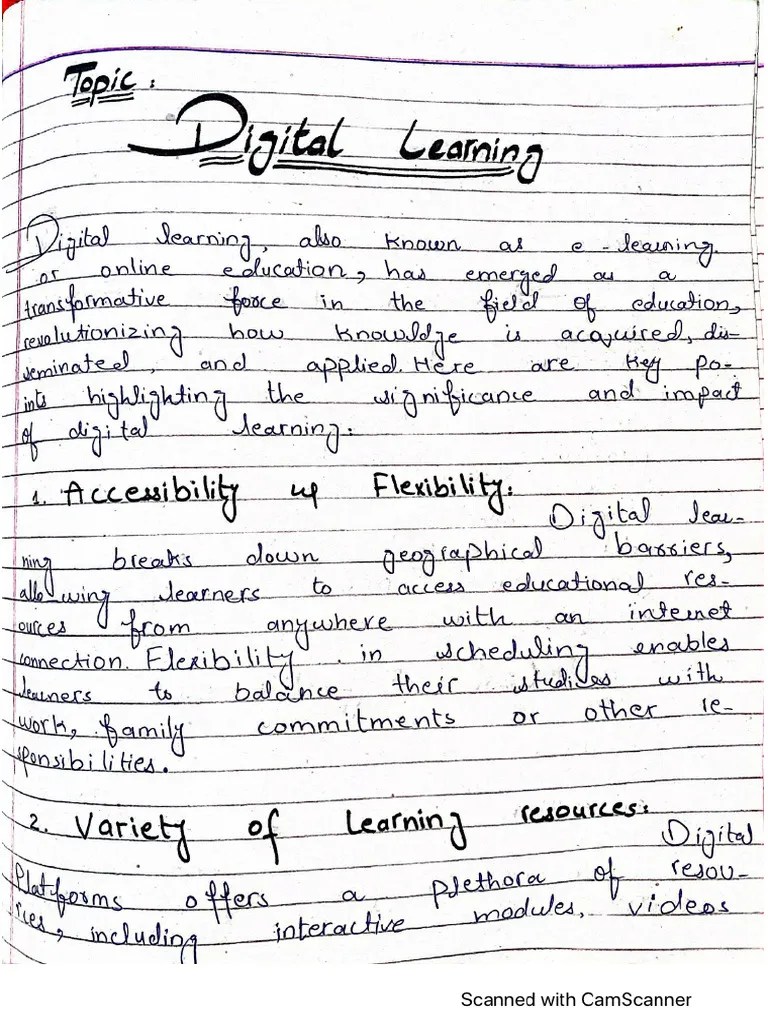 Topic :
Digital Learning
Digital learning, also known as e-learning
or online education, has emerged as a
transformative force in the field of education,
revolutionizing how knowldge is acquired, dis-
seminated, and applied. Here are key po-
ints highlighting the significance and impact
of digital learning:
1. Accessibility & Flexibility:
Digital lear-
ning breaks down geographical barriers,
allowing learners to access educational res-
ources from anywhere with an internet
connection. Flexibility in scheduling enables
learners to balance their studies with
work, family commitments or other re-
sponsibilities.
2. Variety of Learning resources:
Digital
Platforms offers a plethora of resou-
rces, including interactive modules, videos
Scanned with CamScanner